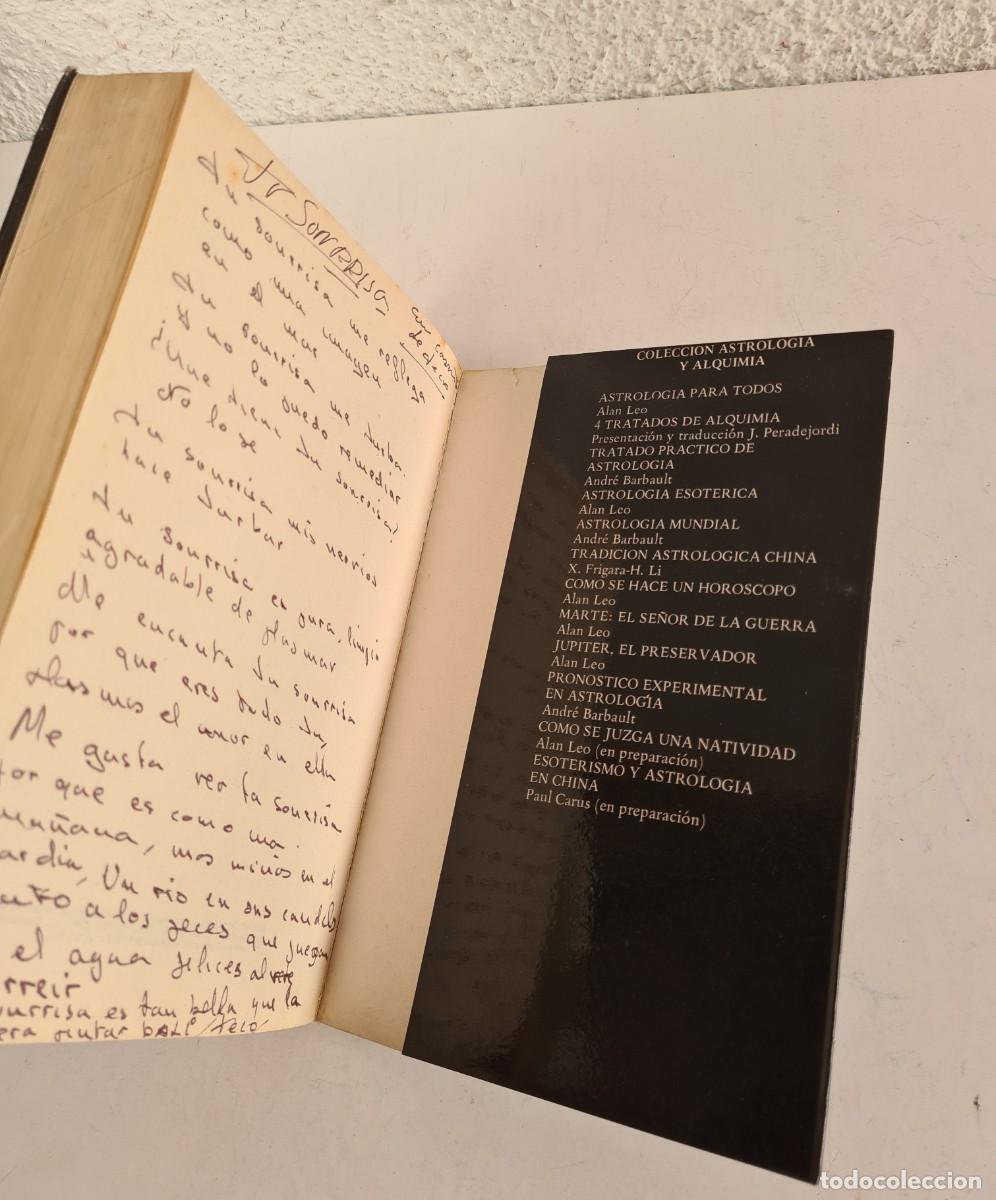 TU SONRRISA
Tu sonrrisa me refleja
como una imagen
en el mar
Tu sonrrisa me turba
y no lo puedo remediar
¿Que tiene tu sonrrisa?
No lo se
Tu sonrrisa mis nervios
hace turbar
Tu sonrrisa es pura, limpia
agradable de plasmar
Me encanta tu sonrrisa
por que eres todo tu,
plasmas el amor en ella
Me gusta ver tu sonrrisa
por que es como una
mañana, unos niños en el
ardin, Un rio en sus caudales
a los peces que juegan
el agua felices al verte
rreir
onrrisa es tan bella que la
era pintar
COLECCION ASTROLOGIA
Y ALQUIMIA
ASTROLOGIA PARA TODOS
Alan Leo
4 TRATADOS DE ALQUIMIA
Presentación y traducción J. Peradejordi
TRATADO PRACTICO DE
ASTROLOGIA
André Barbault
ASTROLOGIA ESOTERICA
Alan Leo
ASTROLOGIA MUNDIAL
André Barbault
TRADICION ASTROLOGICA CHINA
X. Frigara-H. Li
COMO SE HACE UN HOROSCOPO
Alan Leo
MARTE: EL SEÑOR DE LA GUERRA
Alan Leo
JUPITER, EL PRESERVADOR
Alan Leo
PRONOSTICO EXPERIMENTAL
EN ASTROLOGÍA
André Barbault
COMO SE JUZGA UNA NATIVIDAD
Alan Leo (en preparación)
ESOTERISMO Y ASTROLOGIA
EN CHINA
Paul Carus (en preparación)
todocoleccion